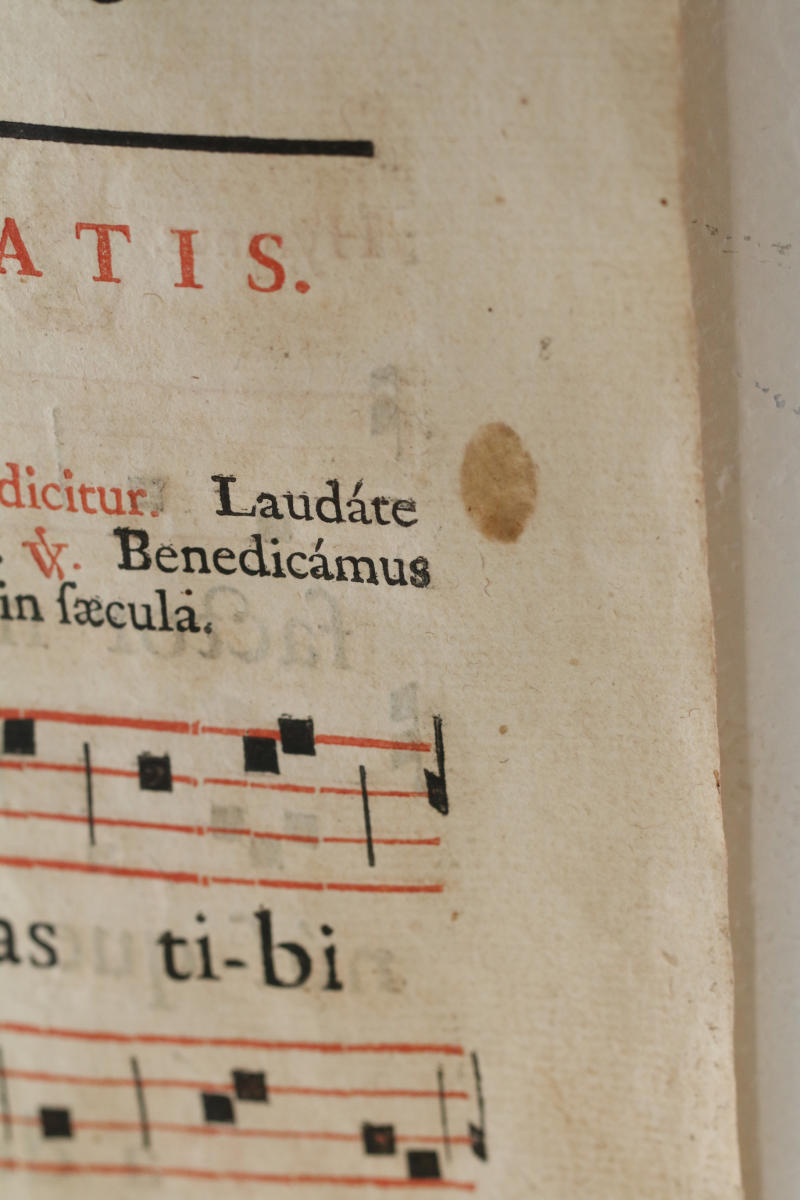 ATIS.
dicitur. Laudáte
. ℣. Benedicámus
in ſæcula.
as ti-bi